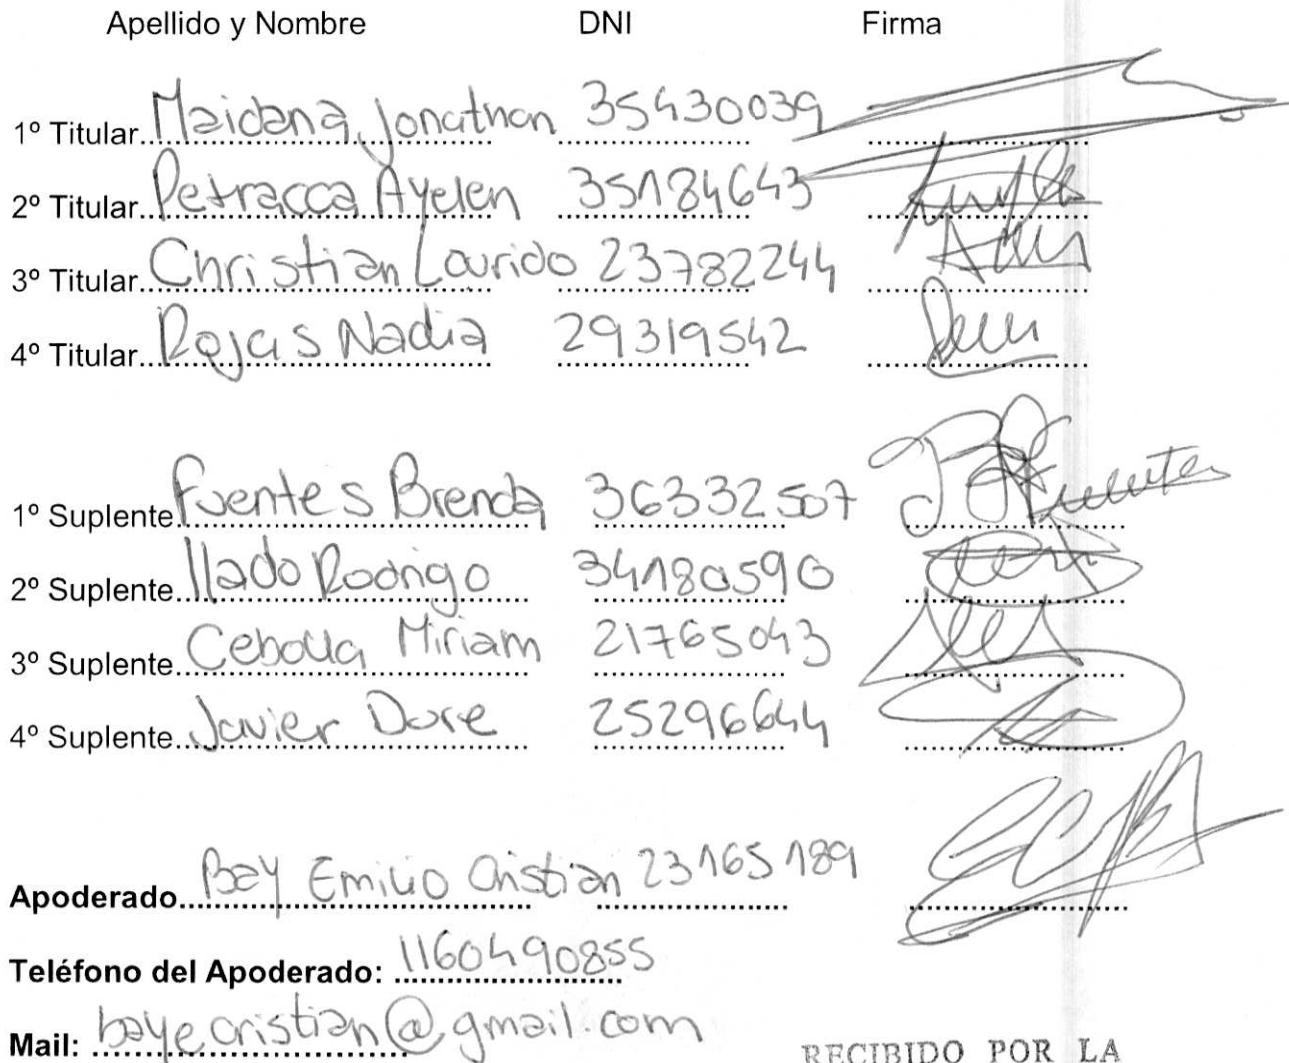 Apellido y Nombre DNI Firma
1º Titular Maidana, Jonathan 35430039
2º Titular Petracca Ayelen 35184643
3º Titular Christian Lourido 23782244
4º Titular Rojas Nadia 29319542
1º Suplente Fuentes Brenda 36332507 Fuentes
2º Suplente Llado Rodrigo 34180590
3º Suplente Cebolla Miriam 21765043
4º Suplente Javier Dore 25296644
Apoderado Bay Emilio Cristian 23165189
Teléfono del Apoderado: 1160490855
Mail: bayecristian@gmail.com
RECIBIDO POR LA